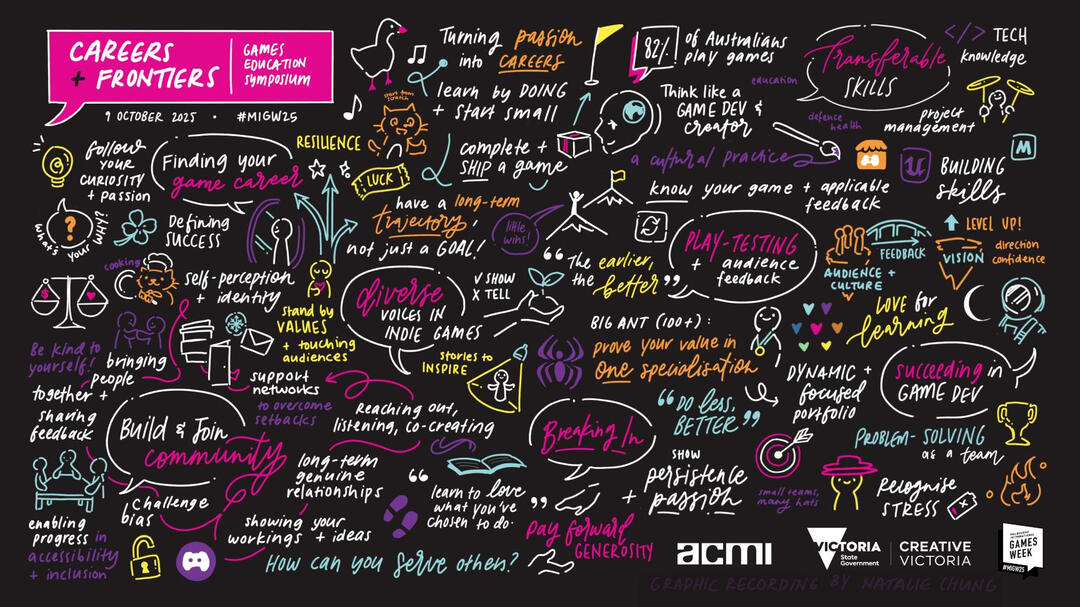 CAREERS
+ FRONTIERS
GAMES
EDUCATION
SYMPOSIUM
9 OCTOBER 2025 · #MIGW25
Turning passion
into CAREERS
learn by DOING
+ start small
complete +
SHIP a game
82%
of Australians
play games
education
Think like a
GAME DEV &
creator
a cultural practice
defence
health
Transferable
SKILLS
</> TECH
knowledge
project
management
BUILDING
skills
M
u
know your game + applicable
feedback
FOLLOW
YOUR
CURIOSITY
+ passion
Finding your
game career
RESILIENCE
start from
scratch
LUCK
have a long-term
trajectory,
not just a GOAL!
little
wins!
?
what's your WHY?
Defining
SUCCESS
cooking
self-perception
+ identity
$
stand by
VALUES
+ touching
audiences
diverse
VOICES IN
INDIE GAMES
V SHOW
X TELL
“The earlier,
the better”
PLAY-TESTING
+ audience
feedback
AUDIENCE +
CULTURE
FEEDBACK
LEVEL UP!
VISION
direction
confidence
LOVE for
learning
BIG ANT (100+):
prove your value in
one specialisation
stories to
INSPIRE
Be kind to
yourself!
bringing
people
together +
sharing
feedback
support
networks
to overcome
setbacks
Reaching out,
listening, co-creating
Build & Join
community
long-term
genuine
relationships
challenge
bias
showing your
workings + ideas
enabling
progress in
accessibility
+ inclusion
How can you serve others?
“learn to love
what you've
chosen to do.”
pay forward
GENEROSITY
Breaking In
“DO less,
BETTER”
SHOW
persistence
+ passion
DYNAMIC +
focused
portfolio
succeeding in
GAME DEV
PROBLEM-SOLVING
as a team
small teams,
many hats
RECOGNISE
STRESS
acmi
VICTORIA
State
Government
CREATIVE
VICTORIA
MELBOURNE
INTERNATIONAL
GAMES
WEEK
#MIGW25
GRAPHIC RECORDING BY NATALIE CHUNG